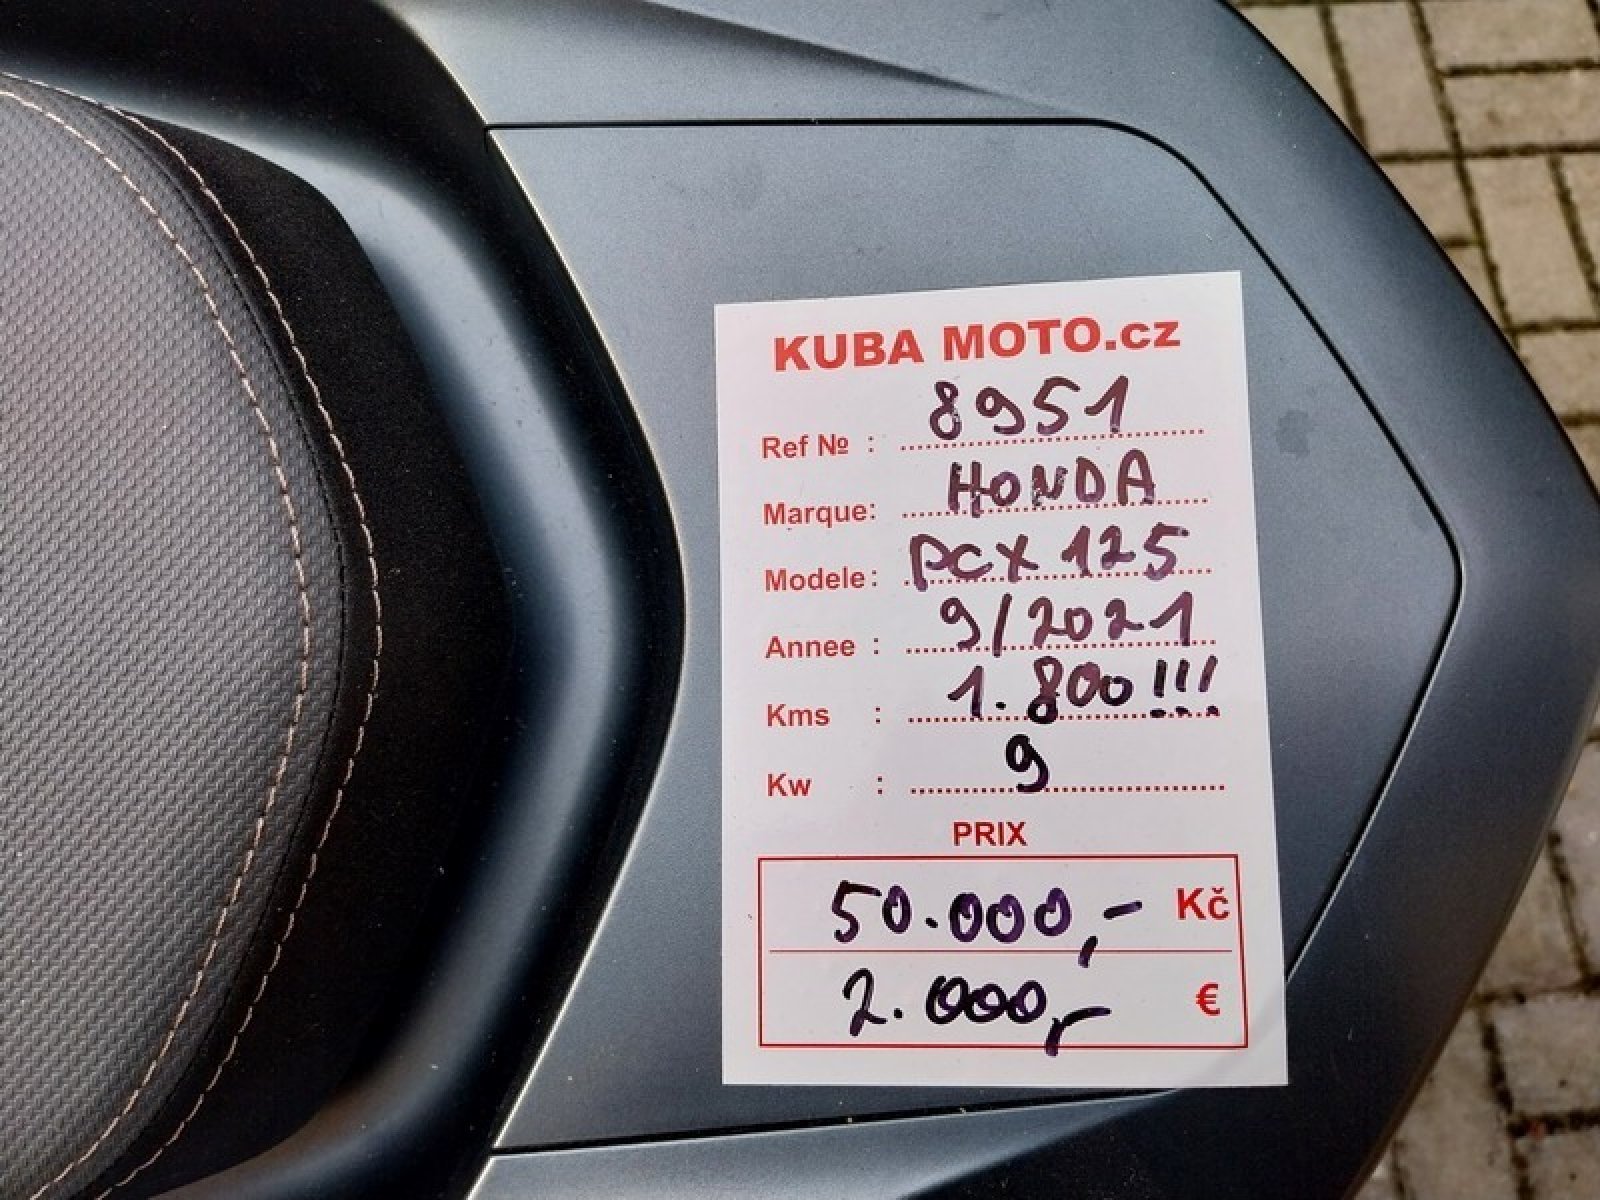 KUBA MOTO.cz
Ref № : 8951
Marque: HONDA
Modele: PCX 125
Annee : 9/2021
Kms : 1.800!!!
Kw : 9
PRIX
50.000,- Kč
2.000,- €